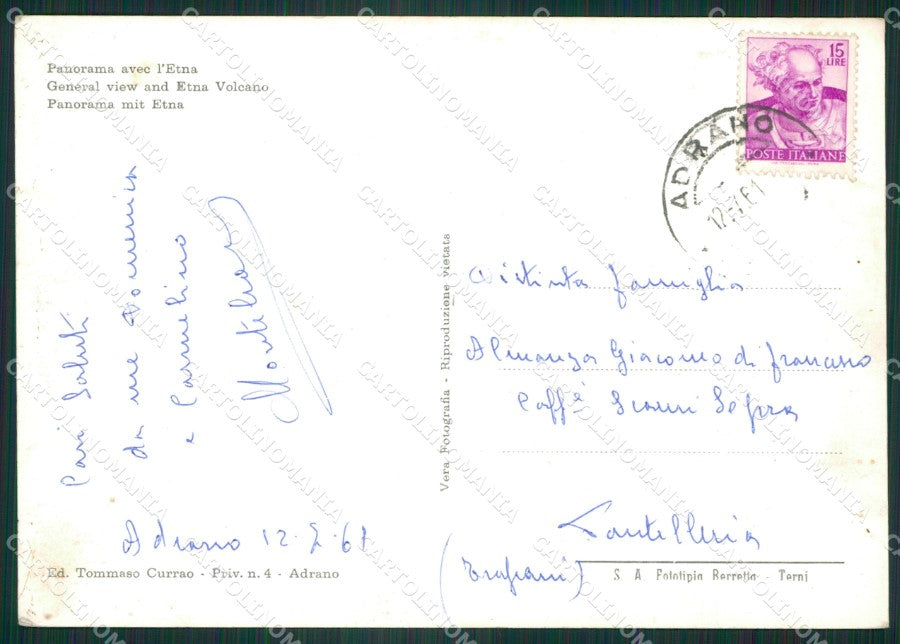 Panorama avec l'Etna
General view and Etna Volcano
Panorama mit Etna
15
LIRE
POSTE ITALIANE
ADRANO
12.7.61
Cari Saluti
da me Domenica
e Carmelino
Adrano 12.7.61
Ed. Tommaso Currao - Priv. n. 4 - Adrano
Vera Fotografia - Riproduzione vietata
Distinta famiglia
Almanza Giacomo di francesco
Caffè Scauri
Pantelleria
(Trapani)
S. A. Fototipia Berretta - Terni
CARTOLINOMANIA